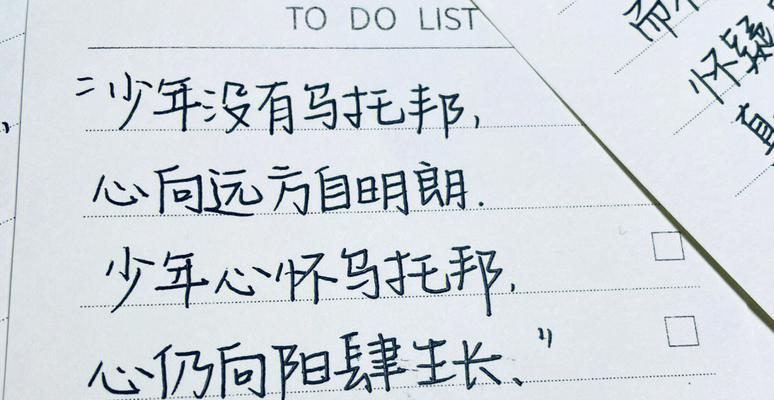 TO DO LIST
“少年没有乌托邦，
心向远方自明朗.
少年心怀乌托邦，
心仍向阳肆生长、”
而
怀疑
真